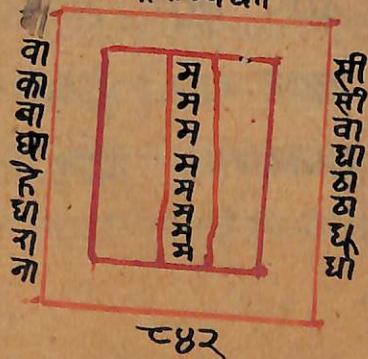 वा
का
बा
घा
हे
घा
रा
ना
म
म
म
म
म
म
म
म
सी
सी
वा
घा
ठा
ठा
घू
घो
८४२